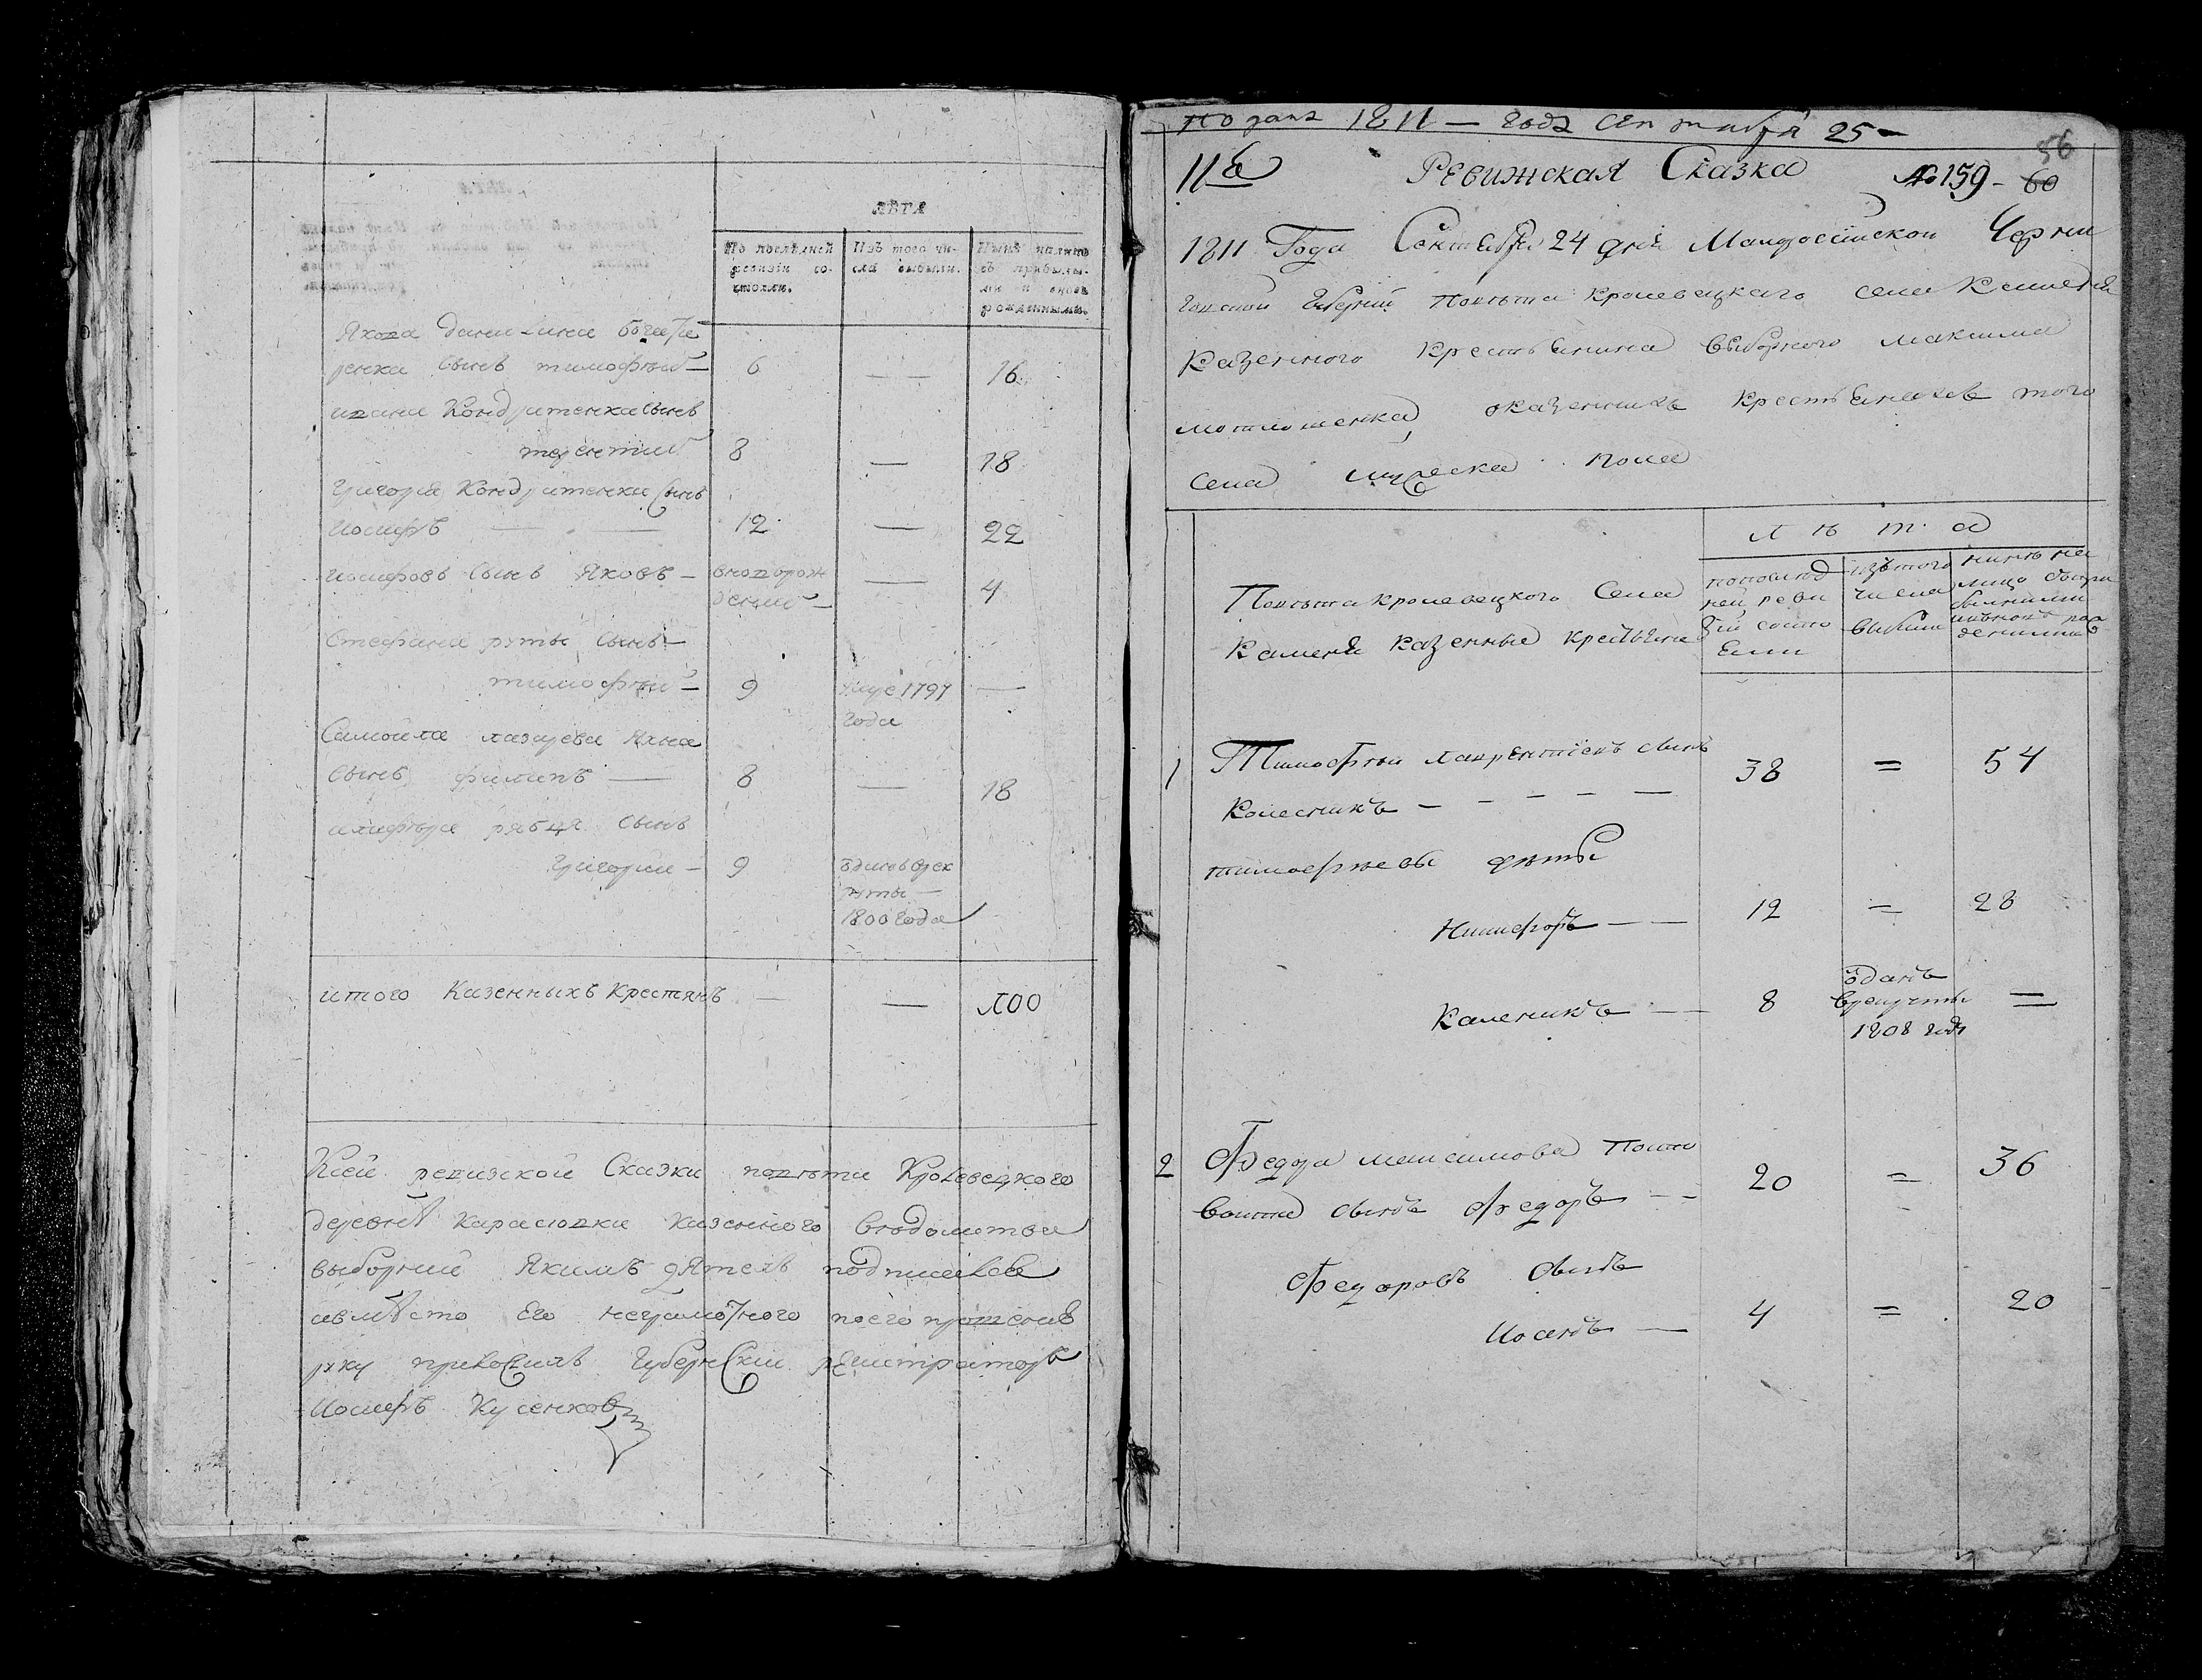 ЛѢТА
По послѣдней ревизіи состояли.
Изъ того числа выбыли.
Нынѣ налицо съ прибылыми и вновь рожденными.
Якова
сынъ тимофѣй — 6 — 16
ивана Кондратенка сынъ
терентий 8 — 18
Григория Кондратенка сынъ
иосифъ — — 12 — 22
иосифовъ сынъ Яковъ — вновьрож
денный — — 4
Стефана руты сынъ —
тимофѣй — 9 умре 1797 —
года
Самойла лазарева
сынъ филипъ — 8 — 18
рябця сынъ
Григорий — 9 рек
руты —
1800 года
итого Казенныхъ Крестянъ — — 100
Ксей ревизской Сказки повѣта Кролевецкого
деревнѣ карасювки казенного вѣдомства
выборний Якимъ дятелъ подписался
авмѣсто Его неграмотного поего прошению
руку приложилъ Губернский регистраторъ
Иосифъ Кусенковъ
подана 1811 — года сентября 25 —
56
11 Ревижская Сказка № 159 - 60
1811 Года Сентября 24 дня Малороссийской Черни
говской Губерний повѣта кролевецкаго села Каменя
казенного крестьянина выборного максима
оказенныхъ крестьянахъ того
села мужеска пола
л ѣ т а
Повѣта кролевецкого Села
Каменя казенные крестьяне
попослѣд
ней реви
зій состо
яли
изътого
числа
выбыли
нынѣ на
лицо
1 Тимофѣй лаврентіевъ сынъ
Колесникъ — — — — — 38 = 54
тимофѣевы дѣты
Никифоръ — — 12 = 28
Каленикъ — — 8 оданъ
врекруты =
1808 года
2 Федора максимова
сынъ Федоръ — — 20 = 36
Федоровъ сынъ
Иосифъ — 4 = 20